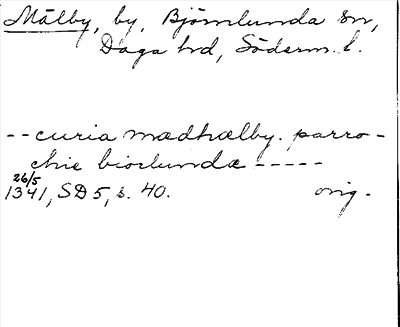 Mälby, by, Björnlunda sn,
Daga hd, Söderm. l.
-- curia mædhælby. parro-
chie biorlundæ -----
26/5
1341, SD 5, s. 40. orig.